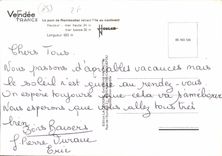 Vendée
FRANCE
Le pont de Noirmoutier reliant l'île au continent
Longueur : 583 m
Chers Tous.
Nous passons d'agréables vacances mais
le soleil n'est guère au rendez-vous
On espère toujours que cela s'améliorera
Nous esperons que vous allez tous très
bien
Bons Baisers
Pierre
Eric